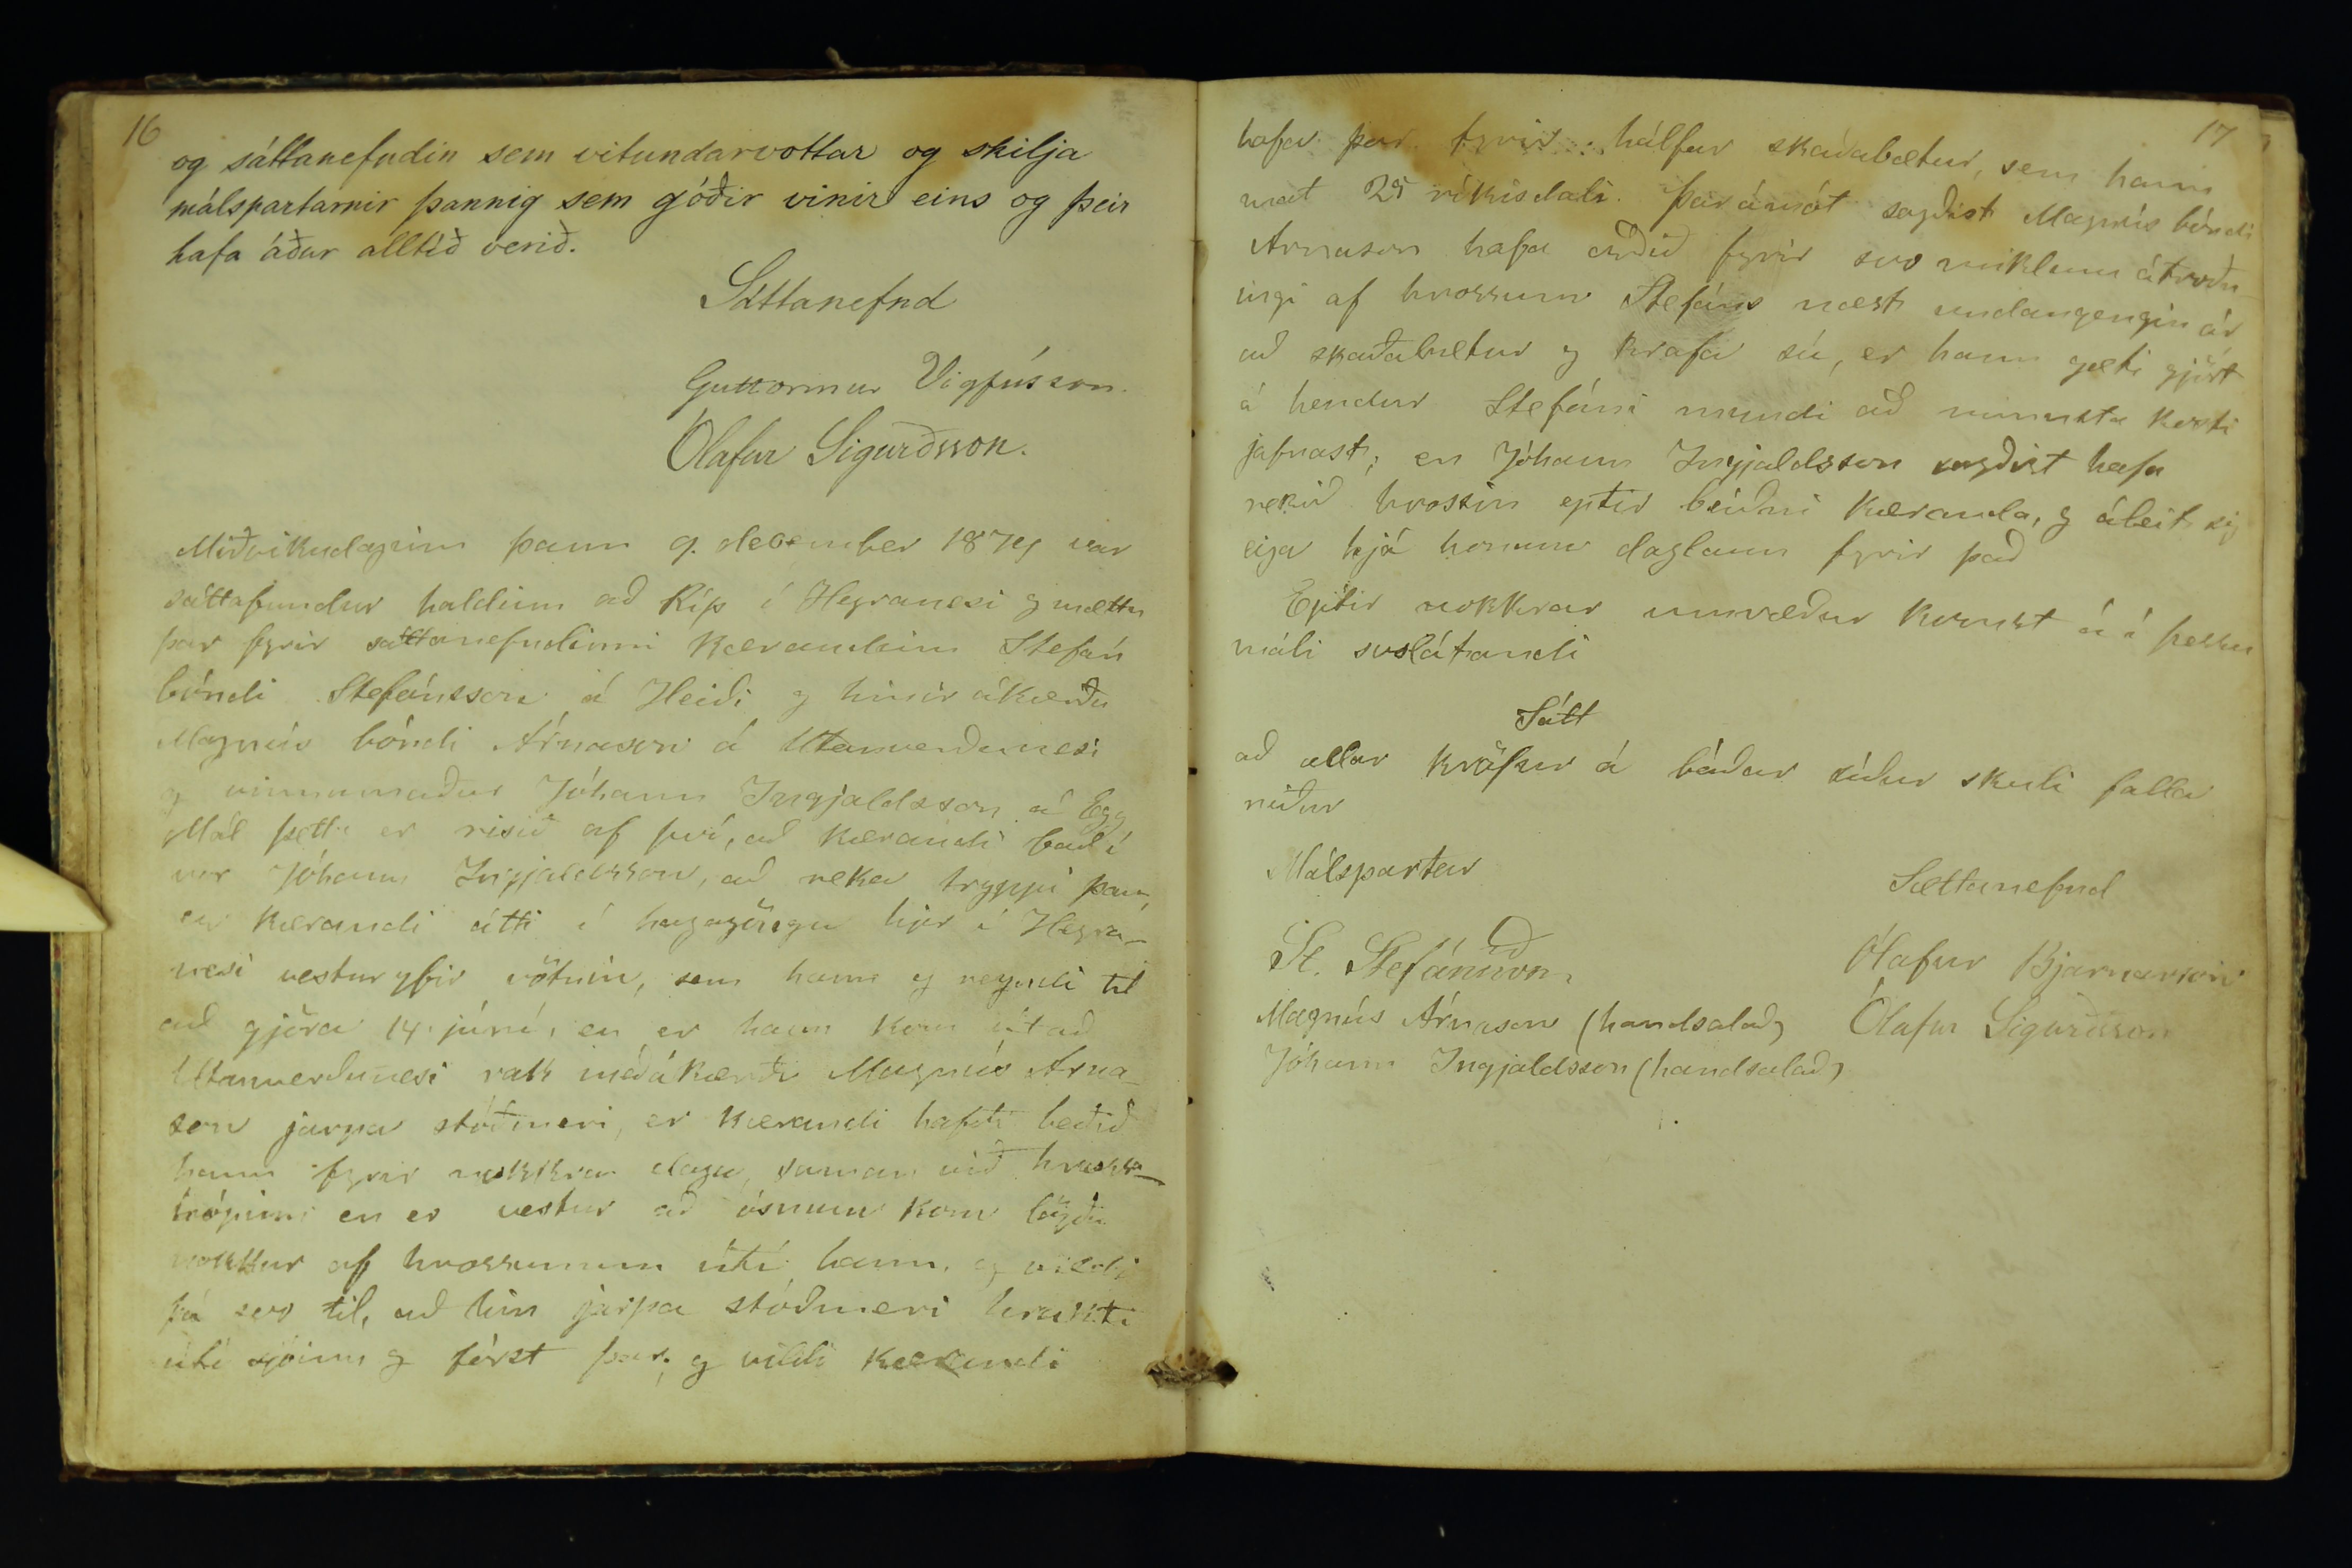 16
og sáttanefndin sem vitundarvottar og skilja
málspartarnir þannig sem góðir vinir eins og þeir
hafa áður alltíð verið.
Sáttanefnd
Guttormur Vigfússon.
Ólafur Sigurðsson.
Miðvikudaginn þann 9. december 1874 var
sáttafundur haldinn að Ríp í Hegranesi og mættu
þar fyrir sáttanefndinni kærandinn Stefán
bóndi Stefánsson á Heiði og hinir ákærðu
Magnús bóndi Árnason á Utanverðunesi
og vinnumaður Jóhann Ingjaldsson á Egg
Mál þetta er risið af því, að kærandi bað í
vor Jóhann Ingjaldsson, að reka tryppi þau,
er kærandi átti í hagagöngu hjer í Hegra-
nesi vestur yfir vötnin, sem hann og reyndi til
að gjöra 14. júní, en er hann kom út að
Utanverðunesi rak meðákærði Magnús Árna-
son jarpa stóðmeri, er kærandi hafði beðið
hann fyrir nokkra daga, saman við hrossa-
hópinn en er vestur að ósnum kom lögðu
nokkur af hrossunum útí hann, og vildi
þá svo til, að hin jarpa stóðmeri hrakti
útí sjóinn og fórst þar; og vildi kærandi
17
hafa þar fyrir hálfar skaðabætur, sem hann
mat 25 ríkisdali. Þarámót sagðist Magnús bóndi
Árnason hafa orðið fyrir svo miklum átroðn-
ingi af hrossum Stefáns næst undangengin ár
að skaðabætur og krafa sú, er hann gæti gjört
á hendur Stefáni mundi að minnsta kosti
jafnast; en Jóhann Ingjaldsson sagðist hafa
rekið hrossin eptir beiðni kæranda, og áleit sig
eiga hjá honum daglaun fyrir það
Eptir nokkrar umræður komst á í þessu
máli svolátandi
Sátt
að allar kröfur á báðar síður skuli falla
niður
Málspartar
Sættanefnd
St. Stefánsson,
Ólafur Bjarnarson
Magnús Árnason (handsalað)
Ólafur Sigurðsson
Jóhann Ingjaldsson (handsalað)